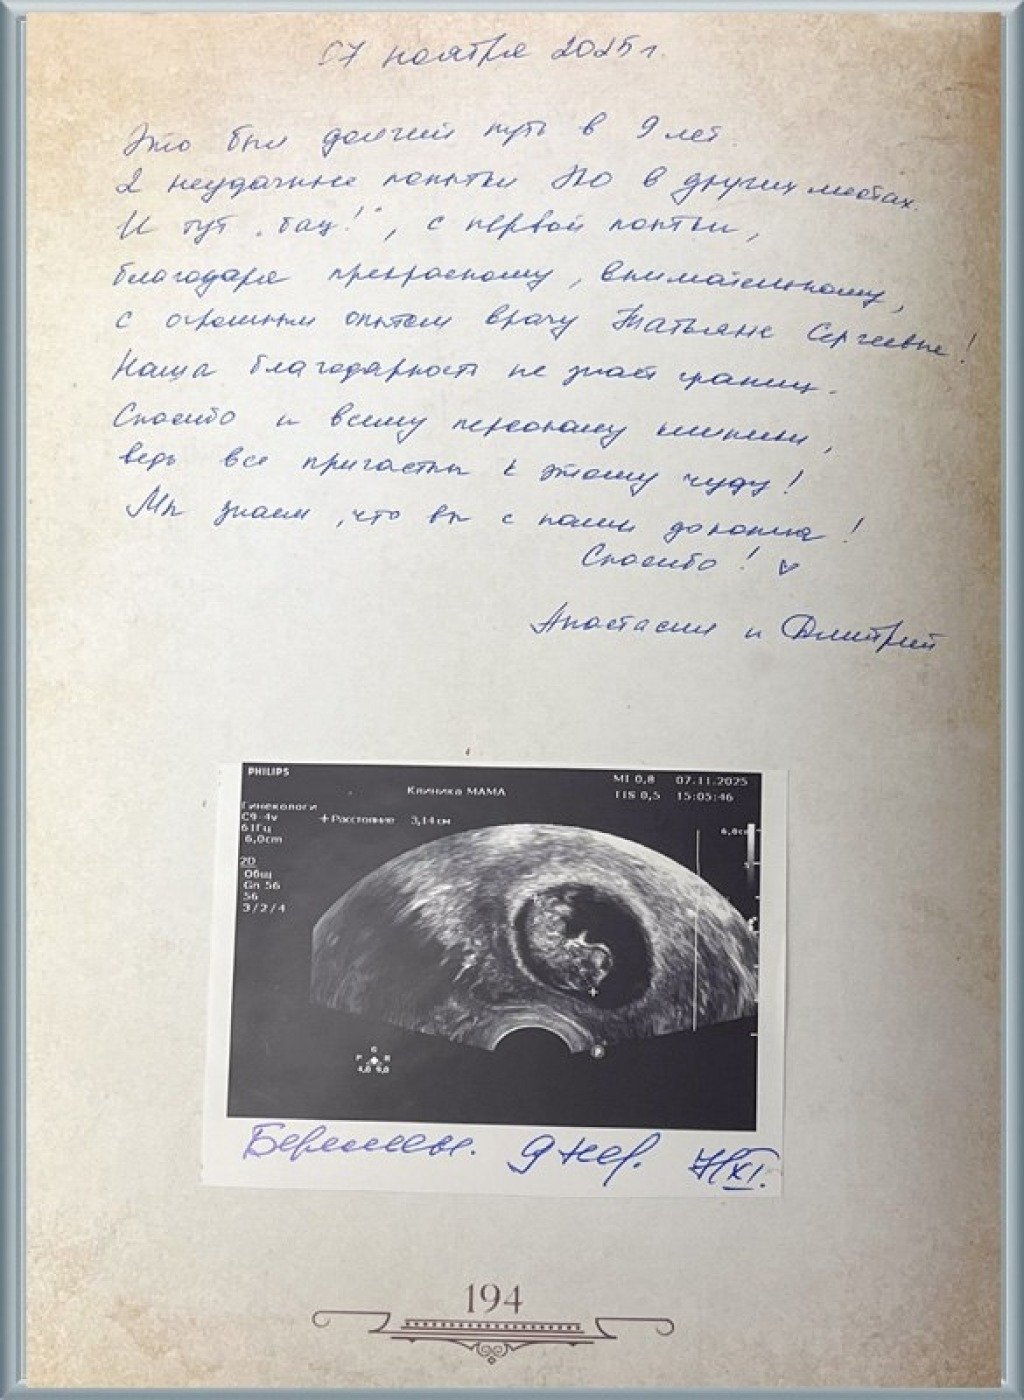 07 ноября 2025 г.
Это был долгий путь в 9 лет.
2 неудачные попытки ЭКО в других местах.
И тут „бац!“, с первой попытки,
благодаря прекрасному, внимательному,
с огромным опытом врачу Татьяне Сергеевне!
Наша благодарность не знает границ.
Спасибо и всему персоналу клиники,
ведь все причастны к этому чуду!
Мы знаем, что вы с нами до конца!
Спасибо!
Анастасия и Дмитрий
PHILIPS
MI 0,8 07.11.2025
Клиника МАМА
TIS 0,5 15:05:46
Гинекологи
C9-4v
61Гц
6,0cm
+ Расстояние 3,14 см
6,0cm
2D
Общ
Gn 56
56
3/2/4
G
P R
4,0 9,0
P
Беременн. 9 нед. XI.
194